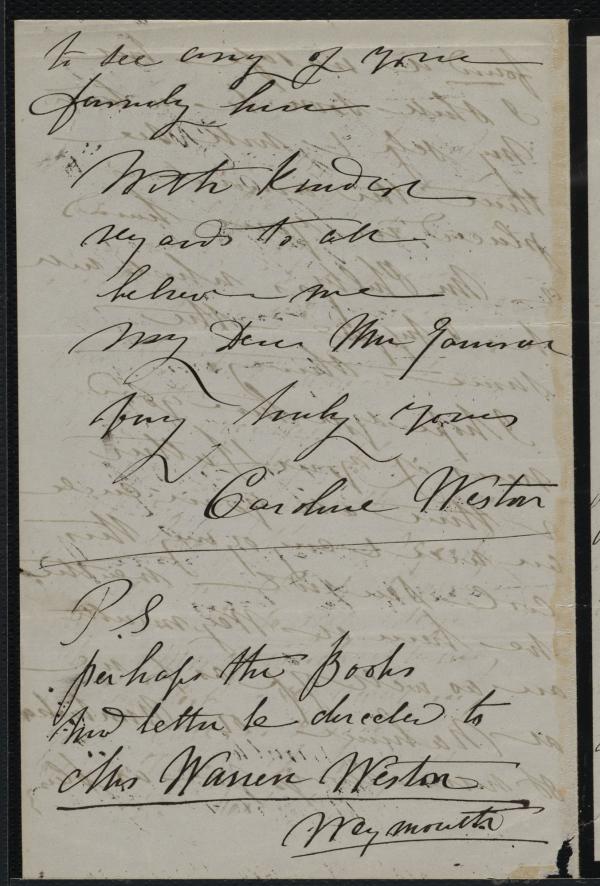 to see any of your
family here
With kindest
regards to all
believe me
My Dear Mr Garrison
very truly yours
Caroline Weston
P.S
perhaps the Books
had better be directed to
Mrs Warren Weston
Weymouth